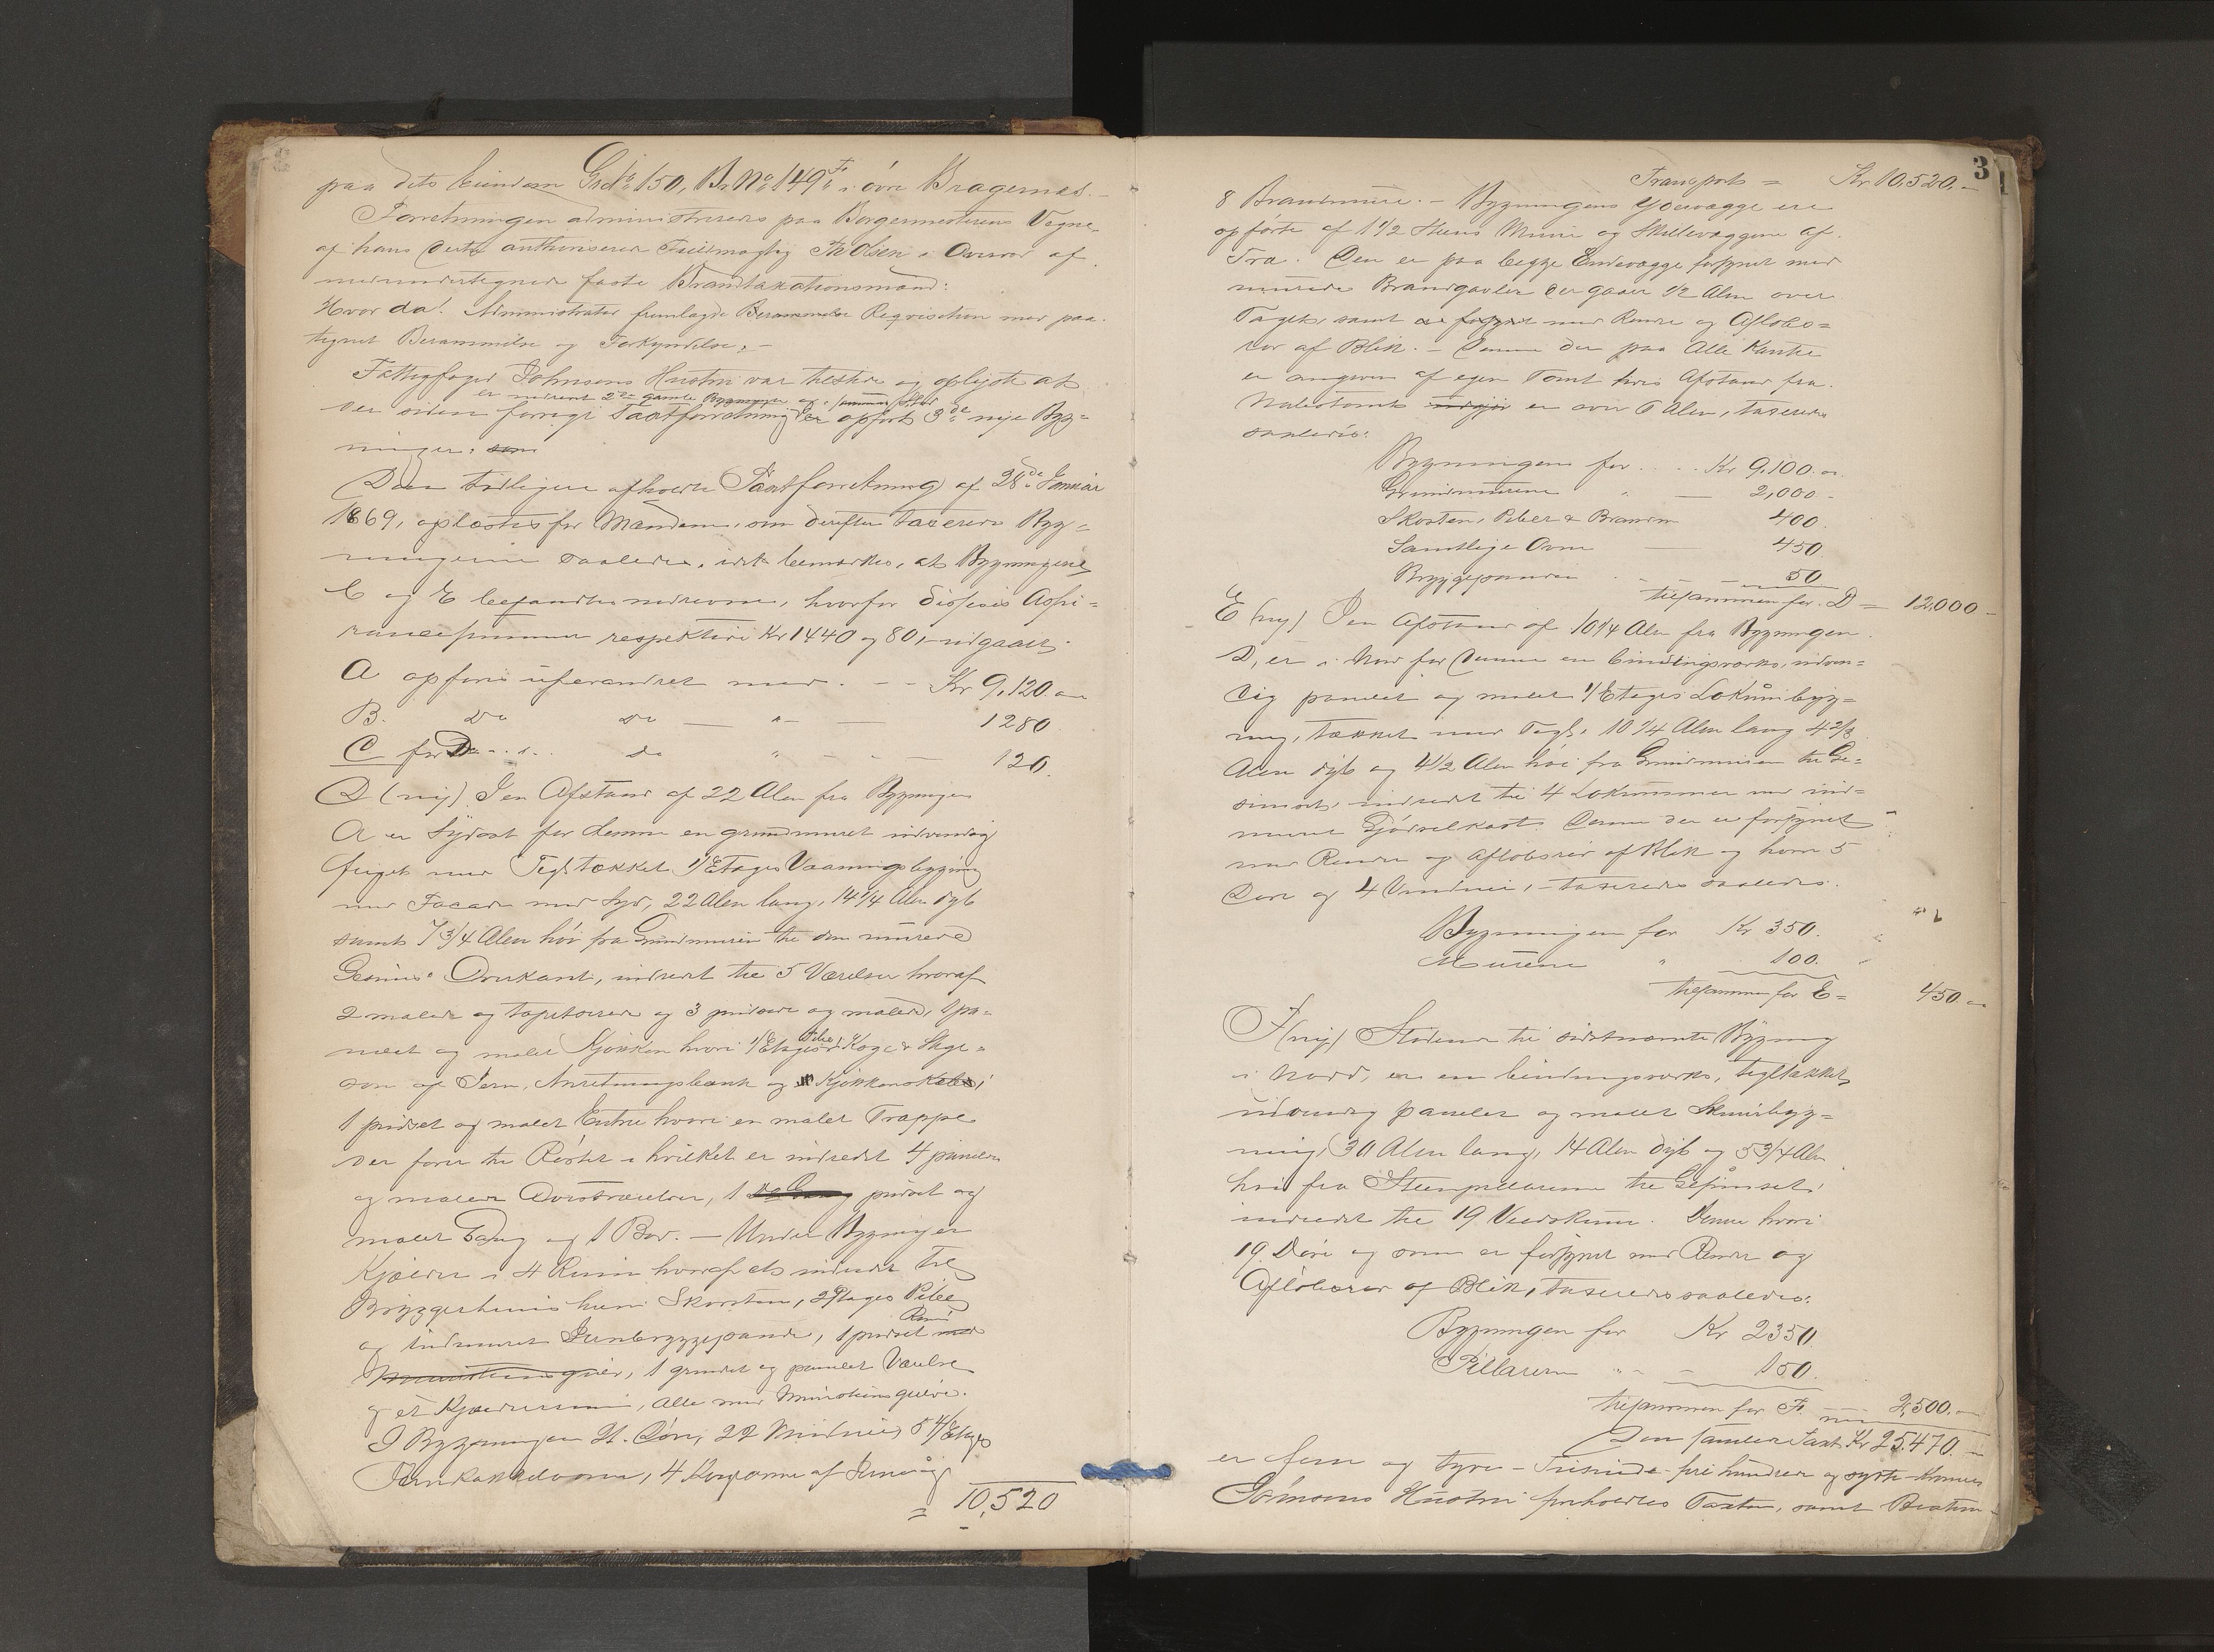 paa dets Eiendom Grd No 150, Br. No 149 F i øvre Bragernes.-
Forretningen administreredes paa Borgermesterens Vegne
af hans dertil authoriserede Fuldmægtig Th Olsen i Overvær af
medundertegnede faste Brandtaxationsmænd:
Hvor da! Administrator fremlagde Berammelse Reqvisition med paa-
tegnet Berammelse og Forkyndelse.-
Fattigfoged Johnsens Hustru var tilstede og oplyste at
er nedrevet 2de gamle Bygninger og
der siden forrige Taxtforretning er opført 3de nye Byg=
ninger: som
Den tidligere afholdte Taxtforretning af 28de Januar
1869, oplæstes for Mændene, som derefter taxerede Byg=
ningerne saaledes, idet bemærkes, at Bygningerne
C og E befandtes nedrevne, hvorfor disses Assu=
rancesummer respektive Kr 1440 og 80,- udgaar.
A opføres uforandret med. - - Kr 9,120. -
B. Do Do - " - 1280
C før D. . . do " - - 120.
D (ny) I en Afstand af 22 Alen fra Bygningen
A er Sydost for denne en grundmuret indvendig
fuget med Tegl tækket 1 Etages Vaaningsbygning
med Facade mod Syd, 22 Alen lang, 14 1/4 Alen dyb
samt 7 3/4 Alen høi fra Grundmuren til den murede
Gesims' Overkant, indredet til 5 Værelser hvoraf
2 malede og tapetserede og 3 pudsede og malede, 1 pa=
nelet og malet Kjøkken hvori 1 Etages Koge & Stege=
ovn af Jern, Anretningsbænk og Kjøkkenskabe,
1 pudset og malet Entre hvori en malet Trappe
der fører til Røstet i hvilket er indredet 4 panelede
og malede Qvistværelser, 1 pudset og
malet Gang og 1 Bod. - Under Bygningen er
Kjælder i 4 Rum hvoraf et indredet til
Bryggerhuus hvori Skorsten, 2 Etages Pibe
Rum
og indmuret Jernbryggepande, 1 pudset med
Muurstensgulv, 1 grundet og panelet Værelse
og et Kjælderrum, alle med Murstensgulve.
I Bygningen 21 Døre, 22 Vinduer, 5 4/Etages
Jernkakkelovne, 4 Kogeovne af Jern og
= 10,520
3
Transport = Kr 10,520.-
8 Brandmure. - Bygningens Ydervægge ere
opførte af 1 1/2 Steens Muur og Skillevæggene af
Træ. Den er paa begge Endevægge forsynet med
murede Brandgavler der gaaer 1/2 Alen over
Taget, samt er forsynet med Render og Afløbs=
rør af Blik. - Denne der paa Alle Kanter
er omgiven af egen Tomt hvis Afstand fra
Nabotomt udgjør er over 6 Alen, taxeredes
saaledes:
Bygningen for . . . . Kr 9,100. -
Grundmurene " - 2,000 -
Skorsten, Piber & Brandm 400.
Samtlige Ovne - 450.
Bryggepanden " 50
tilsammen for D = 12,000 -
E (ny) I en Afstand af 10 1/4 Alen fra Bygningen
D, er i Nord for denne en bindingsværks, udven=
dig panelet og malet 1 Etages Lokumsbyg=
ning, tækket med Tegl, 10 1/4 Alen lang 4 2/3
Alen dyb og 4 1/2 Alen høi fra Grundmuren til Ge=
simset, indredet til 4 Lokummer med ind=
muret Gjødselkaste. Denne der er forsynet
med Render og Afløbsrør af Blik og hvori 5
Døre og 4 Vinduer, - taxeredes saaledes:
Bygningen for Kr 350.
Murene " 100.
tilsammen for E = 450 -
F (ny) Stødende til sidstnævnte Bygning
i Nord, er en bindingsværks, tegltækket
udvendig panelet og malet Skuurbyg=
ning, 30 Alen lang, 14 Alen dyb og 5 3/4 Alen
høi fra Steenpillarerne til Gesimset,
indredet til 19 Vedskure. Denne hvori
19 Døre og som er forsynet med Render og
Afløbsrør af Blik, taxeredes saaledes:
Bygningen for Kr 2350
Pillarerne " - 150.
tilsammen for F. 2,500. -
Den samlede Taxt Kr 25,470. -
er fem og tyve - Tusinde fire hundrede og sytti Kroner
Johnsens Hustru foreholdtes Taxten, samt Bestem-